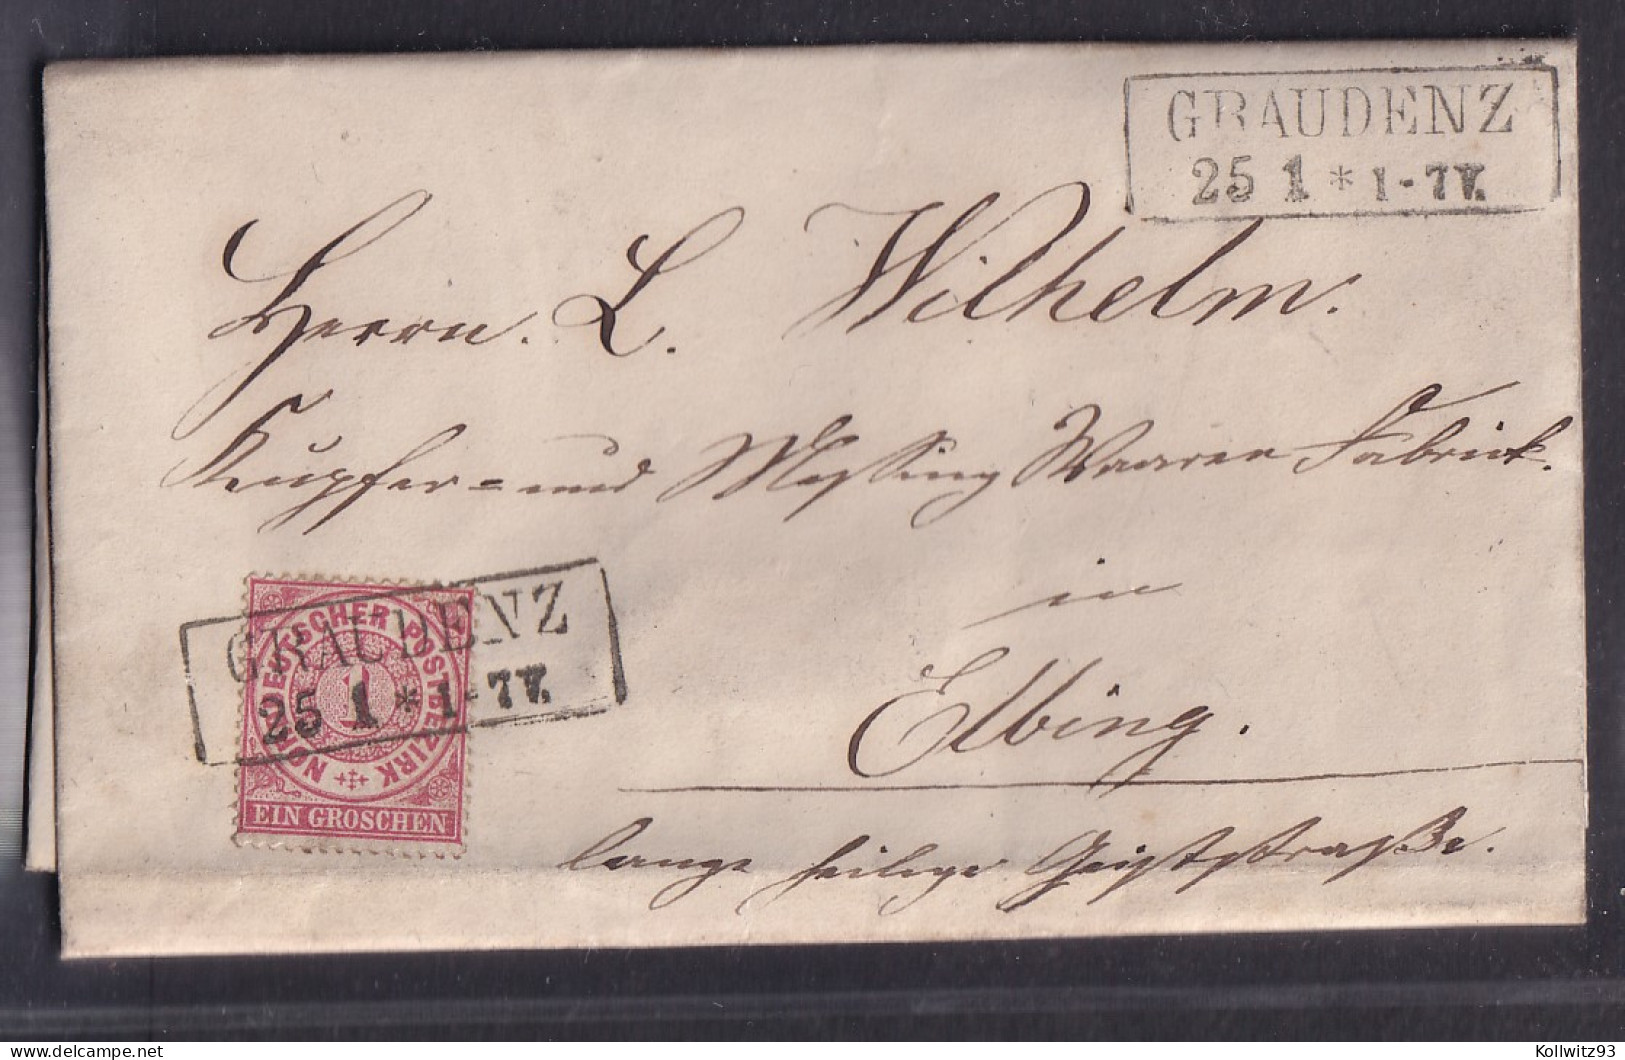 GRAUDENZ
25 1 * 1-7V.
Herrn. L. Wilhelm.
Kupfer= und Messing Waaren Fabrick.
in
Elbing.
lange heilige Geiststraße.
GRAUDENZ
25 1 * 1-7V.
NORDDEUTSCHER POSTBEZIRK
1
EIN GROSCHEN
Kollwitz93
delcampe.net